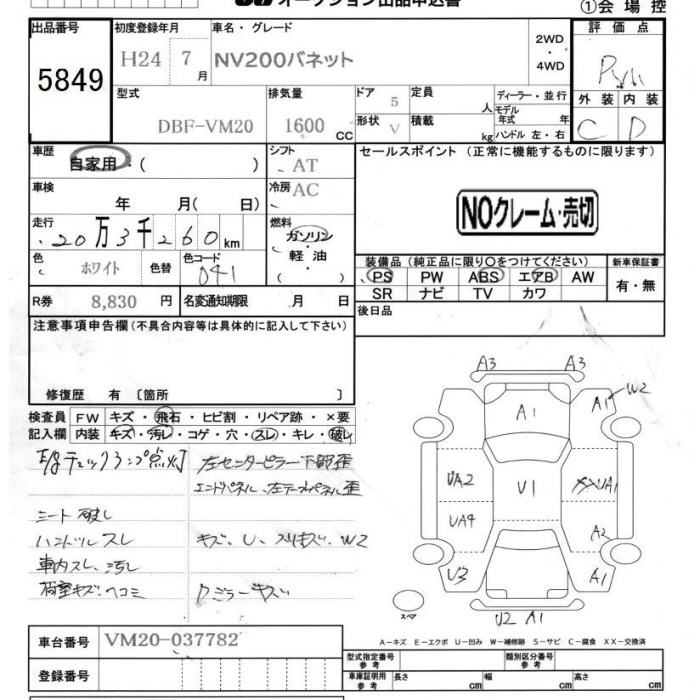 オークション出品申込書
①会場控
出品番号
5849
初度登録年月
H24 7月
車名・グレード
NV200バネット
2WD
・
4WD
評価点
型式
DBF-VM20
排気量
1600 CC
ドア 5
形状 V
定員 人
積載 kg
ディーラー・並行
モデル年式 年
ハンドル 左・右
外装 内装
C D
車歴
自家用・( )
シフト
AT
車検
年 月( 日)
冷房 AC
走行
20万3千260km
燃料
ガソリン
・
軽油
( )
色
ホワイト
色替
色コード
041
R券 8,830 円
名変通知期限 月 日
セールスポイント (正常に機能するものに限ります)
NOクレーム・売切
装備品(純正品に限り〇をつけてください)
PS PW ABS エアB AW
SR ナビ TV カワ
新車保証書
有・無
後日品
注意事項申告欄(不具合内容等は具体的に記入して下さい)
修復歴 有 〔箇所 〕
検査員
記入欄
FW キズ・飛石・ヒビ割・リペア跡・×要
内装 キズ・汚レ・コゲ・穴・スレ・キレ・破レ
チェックランプ点灯
左センターピラー下部歪
エンドパネル、左テールパネル歪
シート破レ
ハンドルスレ
キズ、U、スリキズ、W2
車内スレ、汚レ
荷室キズ・ヘコミ
ミラーキズ
A3 A3
A1
A1 W2
UA2
U1
UA1
UA4
A2
U3
A1
スペア
U2 A1
A-キズ E-エクボ U-凹み W-補修跡 S-サビ C-腐食 XX-交換済
車台番号 VM20-037782
登録番号
型式指定番号
参考
類別区分番号
参考
車庫証明用
参考
長さ cm
幅 cm
高さ cm